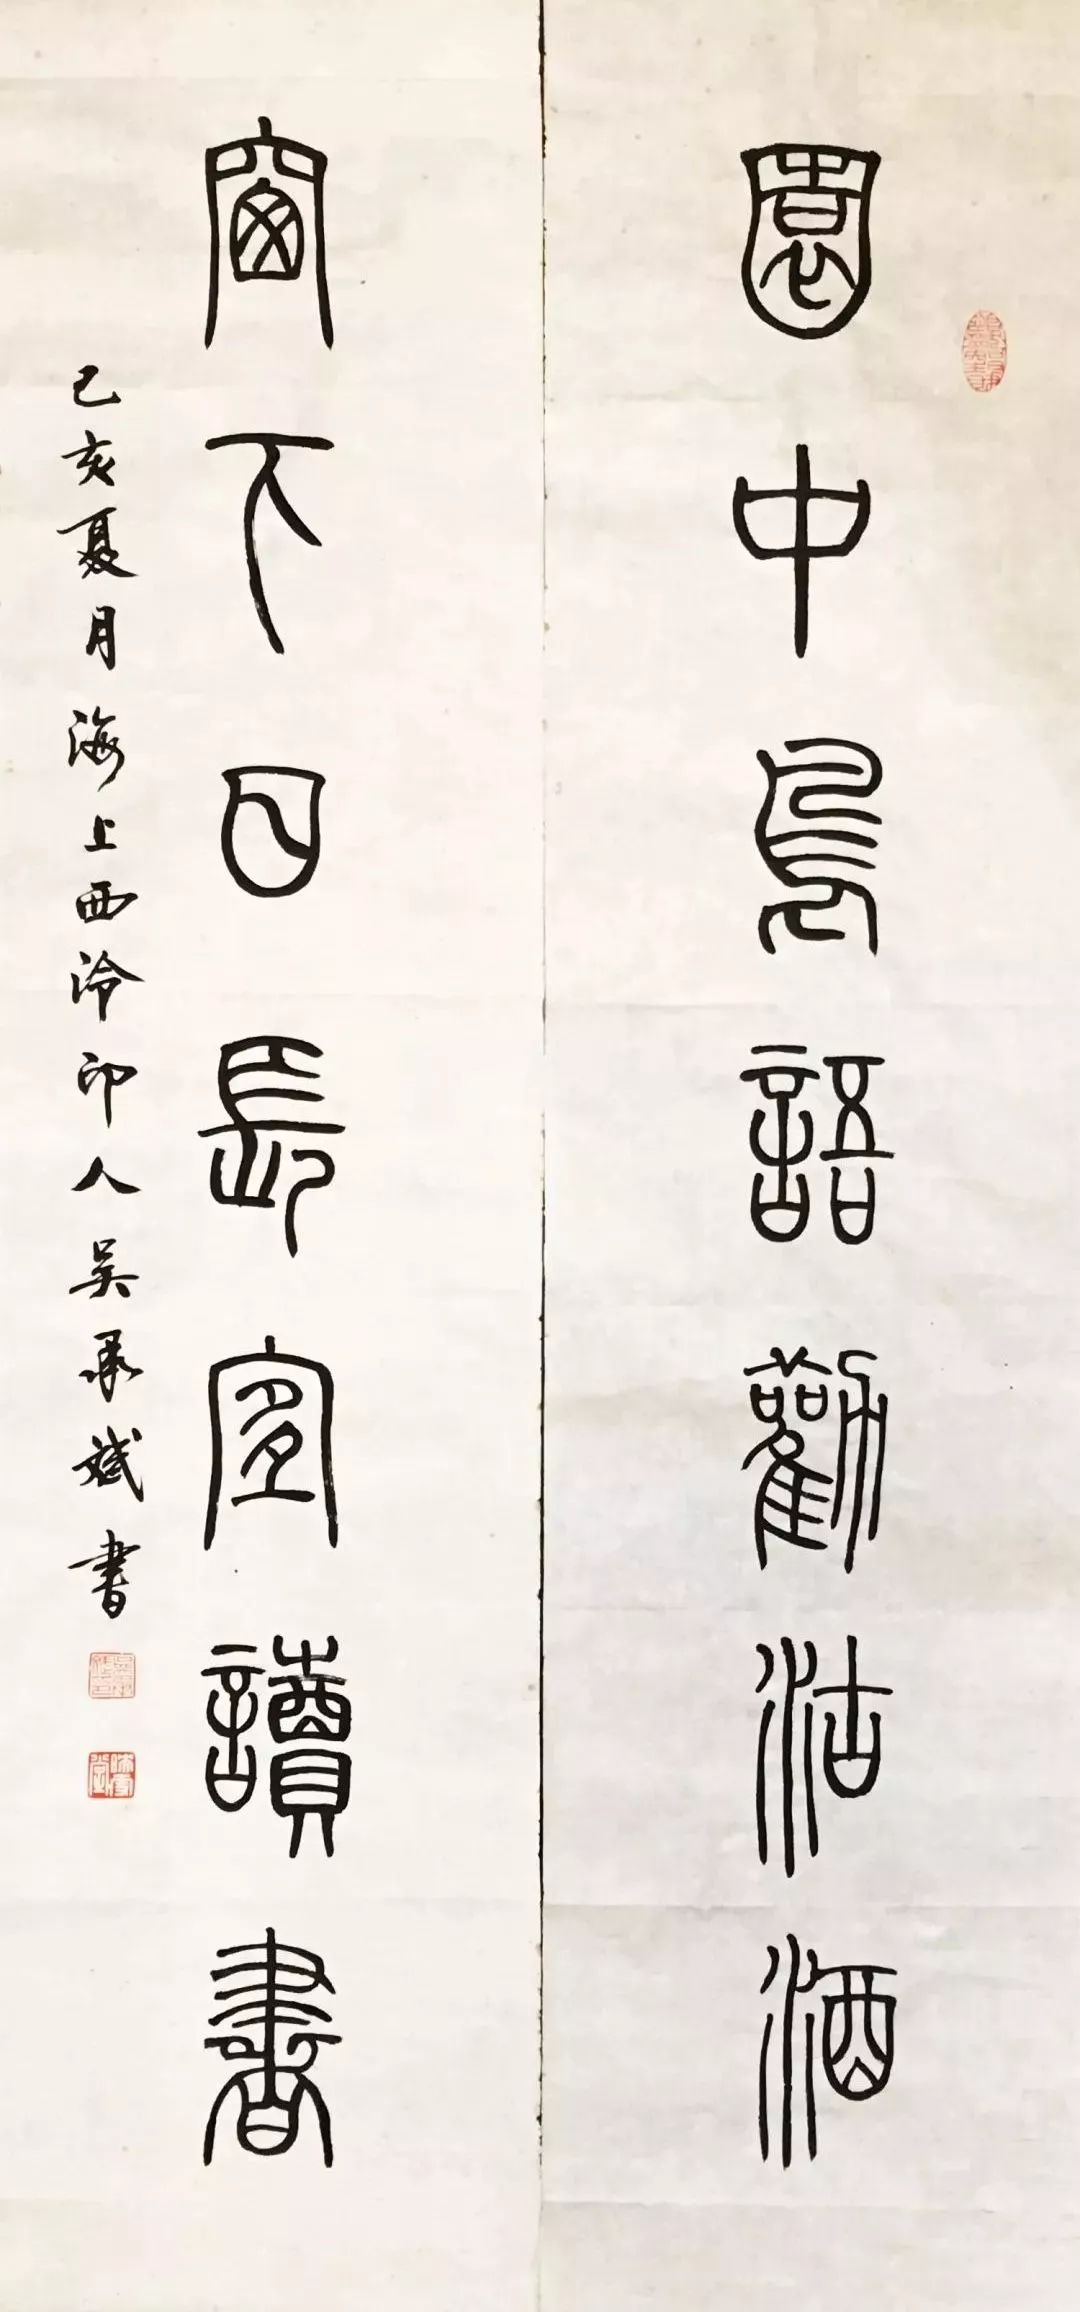 園中鳥語勸沽酒
窗下日長宜讀書
己亥夏月海上西泠印人吳承斌書